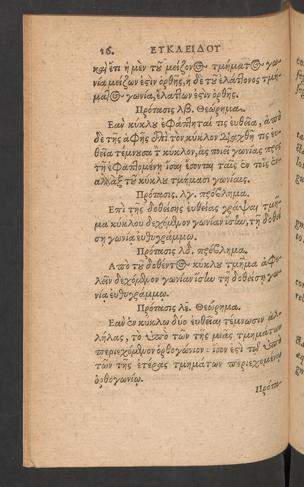 16. ΕΥΚΛΕΙΔΟΥ
καὶ ἔτι ἡ μὲν τοῦ μείζονος τμήματος γω-
νία μείζων ἐστὶν ὀρθῆς, ἡ δὲ τοῦ ἐλάττονος τμή-
ματος γωνία, ἐλάττων ἐστὶν ὀρθῆς.
Πρότασις λβ. Θεώρημα.
Ἐὰν κύκλου ἐφάπτηταί τις εὐθεῖα, ἀπὸ
δὲ τῆς ἁφῆς ἐπὶ τὸν κύκλον διαχθῇ τις εὐ-
θεῖα τέμνουσα τὸν κύκλον, ἃς ποιεῖ γωνίας πρὸς
τῇ ἐφαπτομένῃ ἴσαι ἔσονται ταῖς ἐν τοῖς ἐν-
αλλὰξ τοῦ κύκλου τμήμασι γωνίαις.
Πρότασις. λγ. πρόβλημα.
Ἐπὶ τῆς δοθείσης εὐθείας γράψαι τμῆ-
μα κύκλου δεχόμενον γωνίαν ἴσην, τῇ δοθεί-
σῃ γωνίᾳ εὐθυγράμμῳ.
Πρότασις λδ. πρόβλημα.
Ἀπὸ τοῦ δοθέντος κύκλου τμῆμα ἀφε-
λεῖν δεχόμενον γωνίαν ἴσην τῇ δοθείσῃ γω-
νίᾳ εὐθυγράμμῳ.
Πρότασις λε. Θεώρημα.
Ἐὰν ἐν κύκλῳ δύο εὐθεῖαι τέμνωσιν ἀλ-
λήλας, τὸ ὑπὸ τῶν τῆς μιᾶς τμημάτων
περιεχόμενον ὀρθογώνιον: ἴσον ἐστὶ τῷ ὑπὸ
τῶν τῆς ἑτέρας τμημάτων περιεχομένῳ
ὀρθογωνίῳ.
Πρότα-